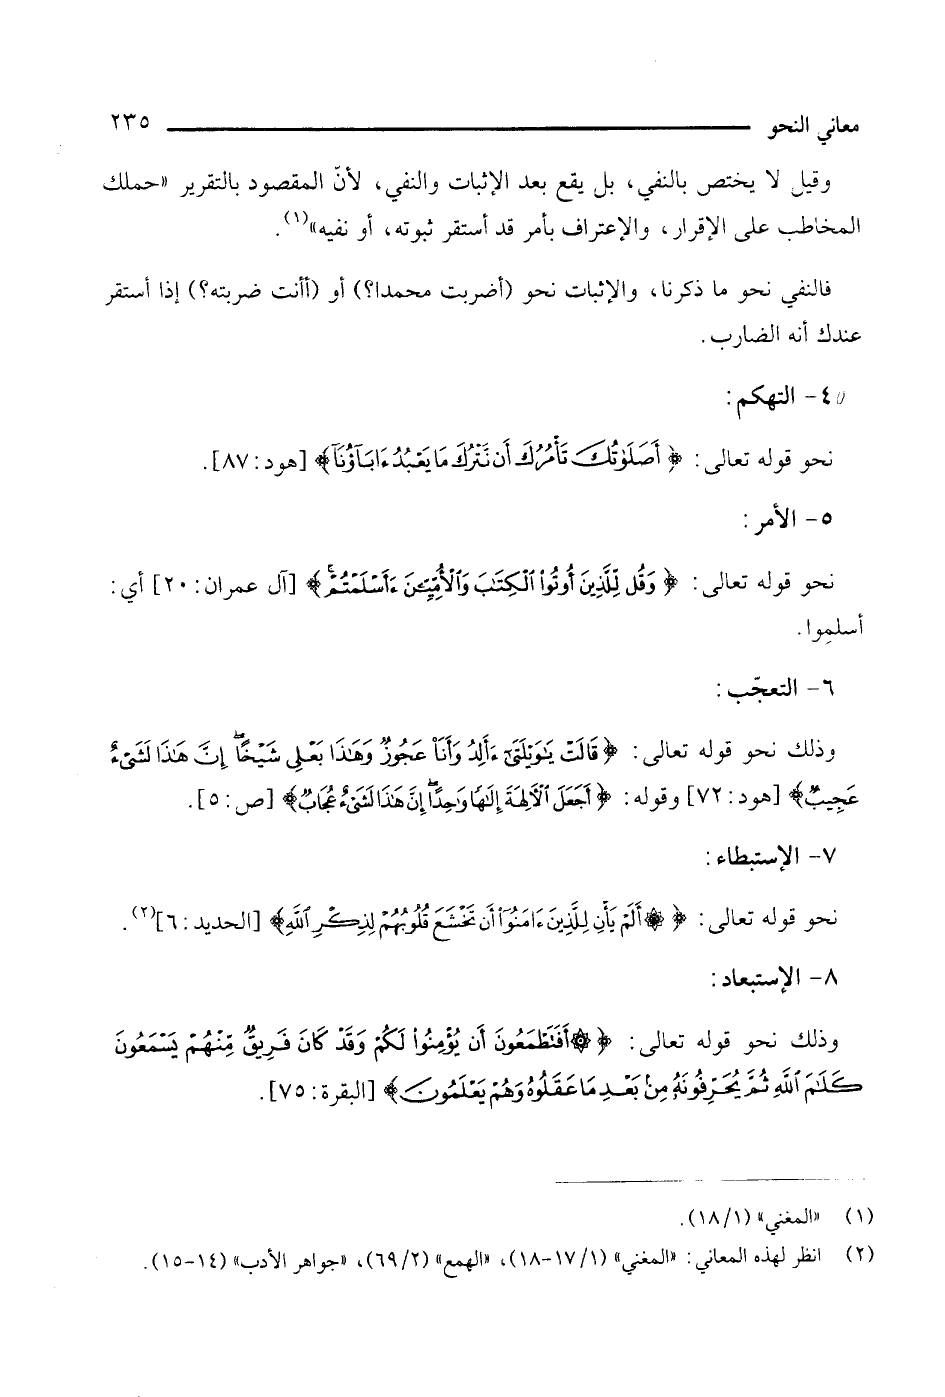 معاني النحو ٢٣٥
وقيل لا يختص بالنفي، بل يقع بعد الإثبات والنفي، لأنّ المقصود بالتقرير «حملك
المخاطب على الإقرار، والإعتراف بأمر قد أستقر ثبوته، أو نفيه»(١).
فالنفي نحو ما ذكرنا، والإثبات نحو (أضربت محمدا؟) أو (أأنت ضربته؟) إذا أستقر
عندك أنه الضارب.
٤- التهكم:
نحو قوله تعالى: ﴿أَصَلَوٰتُكَ تَأْمُرُكَ أَن نَّتْرُكَ مَا يَعْبُدُ ءَابَآؤُنَآ﴾ [هود: ٨٧].
٥- الأمر:
نحو قوله تعالى: ﴿وَقُل لِّلَّذِينَ أُوتُوا۟ ٱلْكِتَٰبَ وَٱلْأُمِّيِّـۧنَ ءَأَسْلَمْتُمْ ۚ﴾ [آل عمران: ٢٠] أي:
أسلِموا.
٦- التعجّب:
وذلك نحو قوله تعالى: ﴿قَالَتْ يَٰوَيْلَتَىٰٓ ءَأَلِدُ وَأَنَا۠ عَجُوزٌ وَهَٰذَا بَعْلِى شَيْخًا ۖ إِنَّ هَٰذَا لَشَىْءٌ
عَجِيبٌ﴾ [هود: ٧٢] وقوله: ﴿أَجَعَلَ ٱلْءَالِهَةَ إِلَٰهًا وَٰحِدًا ۖ إِنَّ هَٰذَا لَشَىْءٌ عُجَابٌ﴾ [ص: ٥].
٧- الإستبطاء:
نحو قوله تعالى: ﴿۞ أَلَمْ يَأْنِ لِلَّذِينَ ءَامَنُوٓا۟ أَن تَخْشَعَ قُلُوبُهُمْ لِذِكْرِ ٱللَّهِ﴾ [الحديد: ٦](٢).
٨- الإستبعاد:
وذلك نحو قوله تعالى: ﴿۞ أَفَتَطْمَعُونَ أَن يُؤْمِنُوا۟ لَكُمْ وَقَدْ كَانَ فَرِيقٌ مِّنْهُمْ يَسْمَعُونَ
كَلَٰمَ ٱللَّهِ ثُمَّ يُحَرِّفُونَهُۥ مِنۢ بَعْدِ مَا عَقَلُوهُ وَهُمْ يَعْلَمُونَ﴾ [البقرة: ٧٥].
(١) «المغني» (١/ ١٨).
(٢) انظر لهذه المعاني: «المغني» (١/ ١٧-١٨)، «الهمع» (٢/ ٦٩)، «جواهر الأدب» (١٤-١٥).